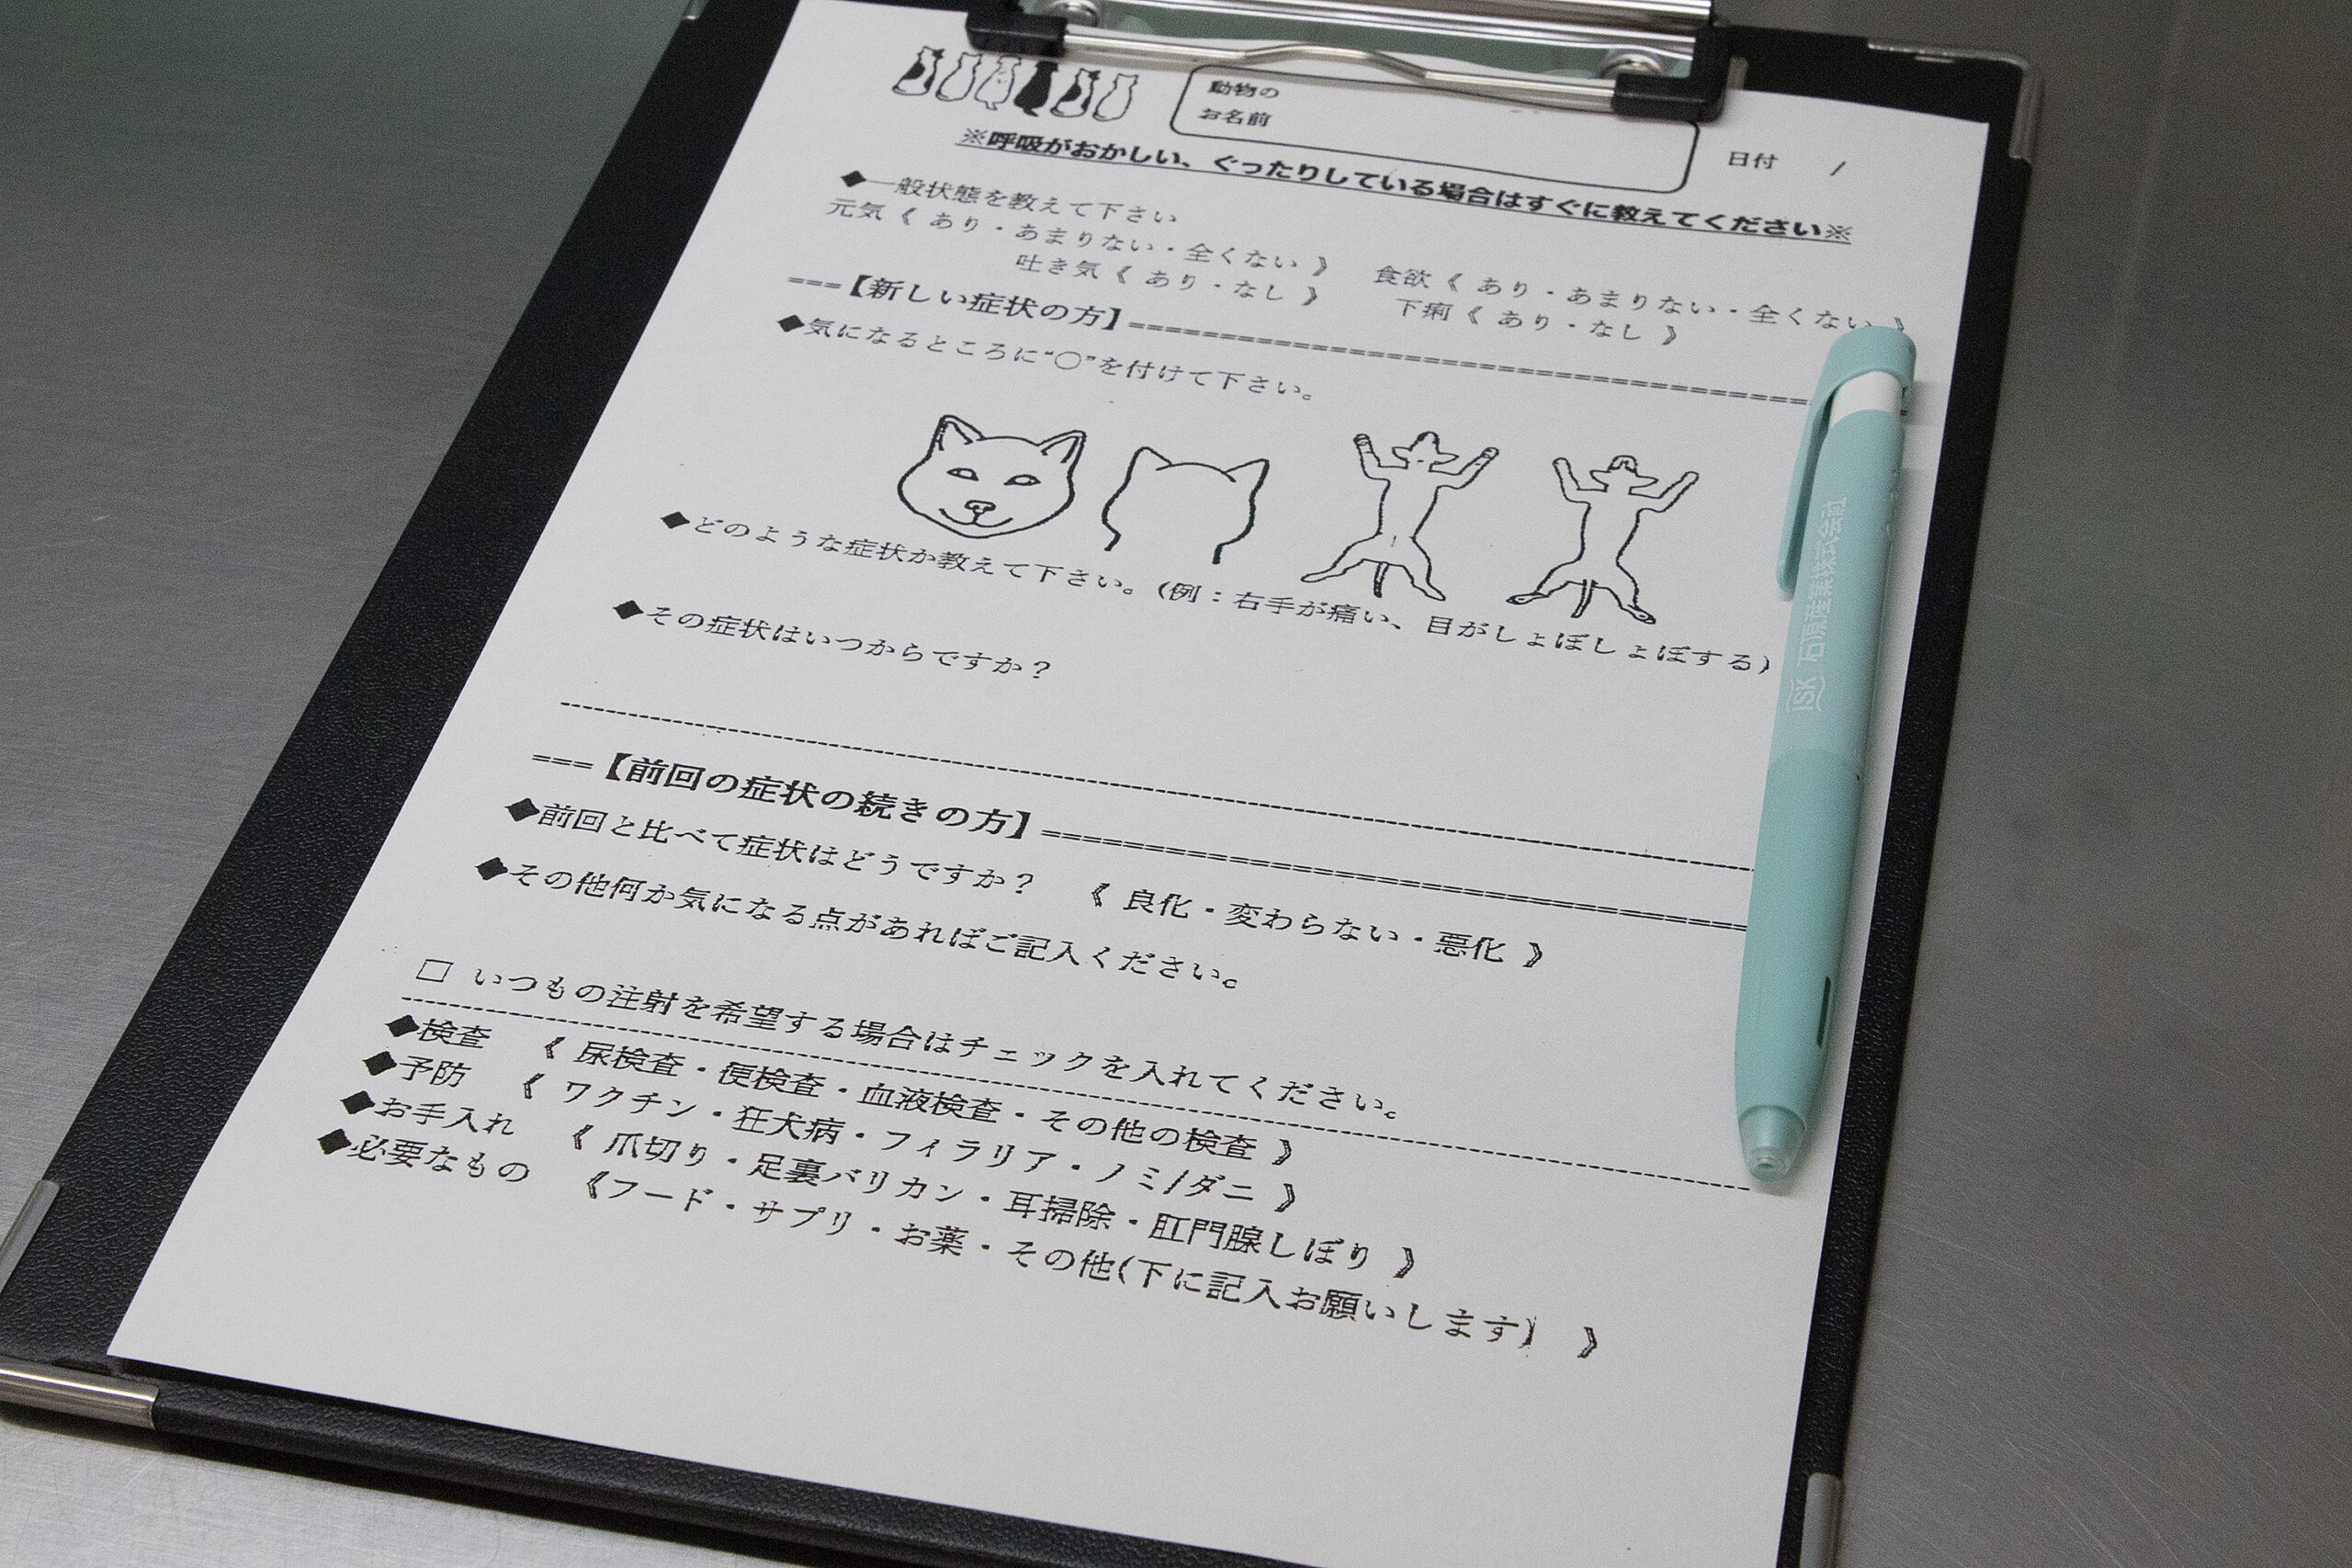 動物の
お名前
日付　/
※呼吸がおかしい、ぐったりしている場合はすぐに教えてください※
◆一般状態を教えて下さい
元気《 あり・あまりない・全くない 》　食欲《 あり・あまりない・全くない 》
吐き気《 あり・なし 》　下痢《 あり・なし 》
===【新しい症状の方】====================================
◆気になるところに“○”を付けて下さい。
◆どのような症状か教えて下さい。(例：右手が痛い、目がしょぼしょぼする)
◆その症状はいつからですか？
===【前回の症状の続きの方】====================================
◆前回と比べて症状はどうですか？　《 良化・変わらない・悪化 》
◆その他何か気になる点があればご記入ください。
□ いつもの注射を希望する場合はチェックを入れてください。
◆検査　《 尿検査・便検査・血液検査・その他の検査 》
◆予防　《 ワクチン・狂犬病・フィラリア・ノミ/ダニ 》
◆お手入れ　《 爪切り・足裏バリカン・耳掃除・肛門腺しぼり 》
◆必要なもの　《フード・サプリ・お薬・その他(下に記入お願いします)　》
ISK 石原産業株式会社